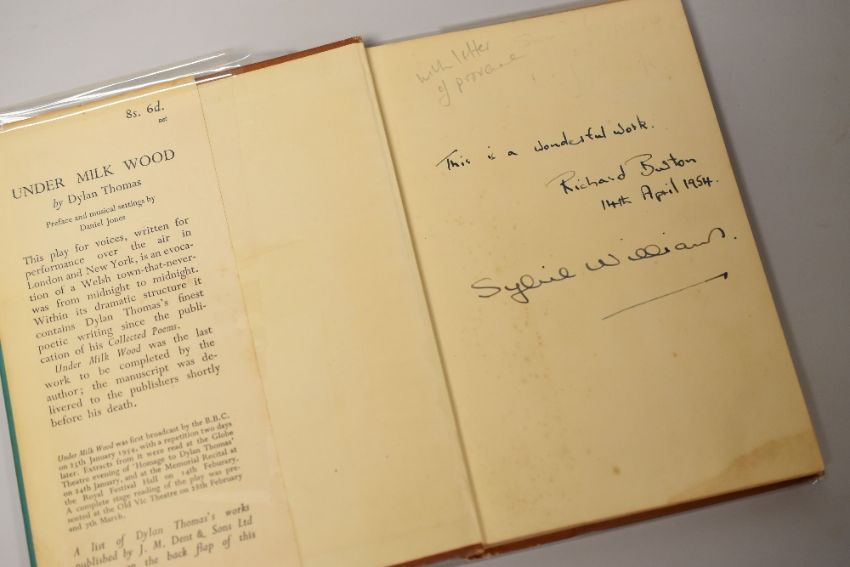 8s. 6d.
net
UNDER MILK WOOD
by Dylan Thomas
Preface and musical settings by
Daniel Jones
This play for voices, written for
performance over the air in
London and New York, is an evoca-
tion of a Welsh town-that-never-
was from midnight to midnight.
Within its dramatic structure it
contains Dylan Thomas's finest
poetic writing since the publi-
cation of his Collected Poems.
Under Milk Wood was the last
work to be completed by the
author; the manuscript was de-
livered to the publishers shortly
before his death.
Under Milk Wood was first broadcast by the B.B.C.
on 25th January 1954, with a repetition two days
later. Extracts from it were read at the Globe
Theatre evening of 'Homage to Dylan Thomas'
on 24th January, and at the Memorial Recital at
the Royal Festival Hall on 14th February.
A complete stage reading of the play was pre-
sented at the Old Vic Theatre on 28th February
and 7th March.
A list of Dylan Thomas's works
published by J. M. Dent & Sons Ltd
on the back flap of this
with letter
of
This is a wonderful work.
Richard Burton
14th April 1954.
Sybil Williams.